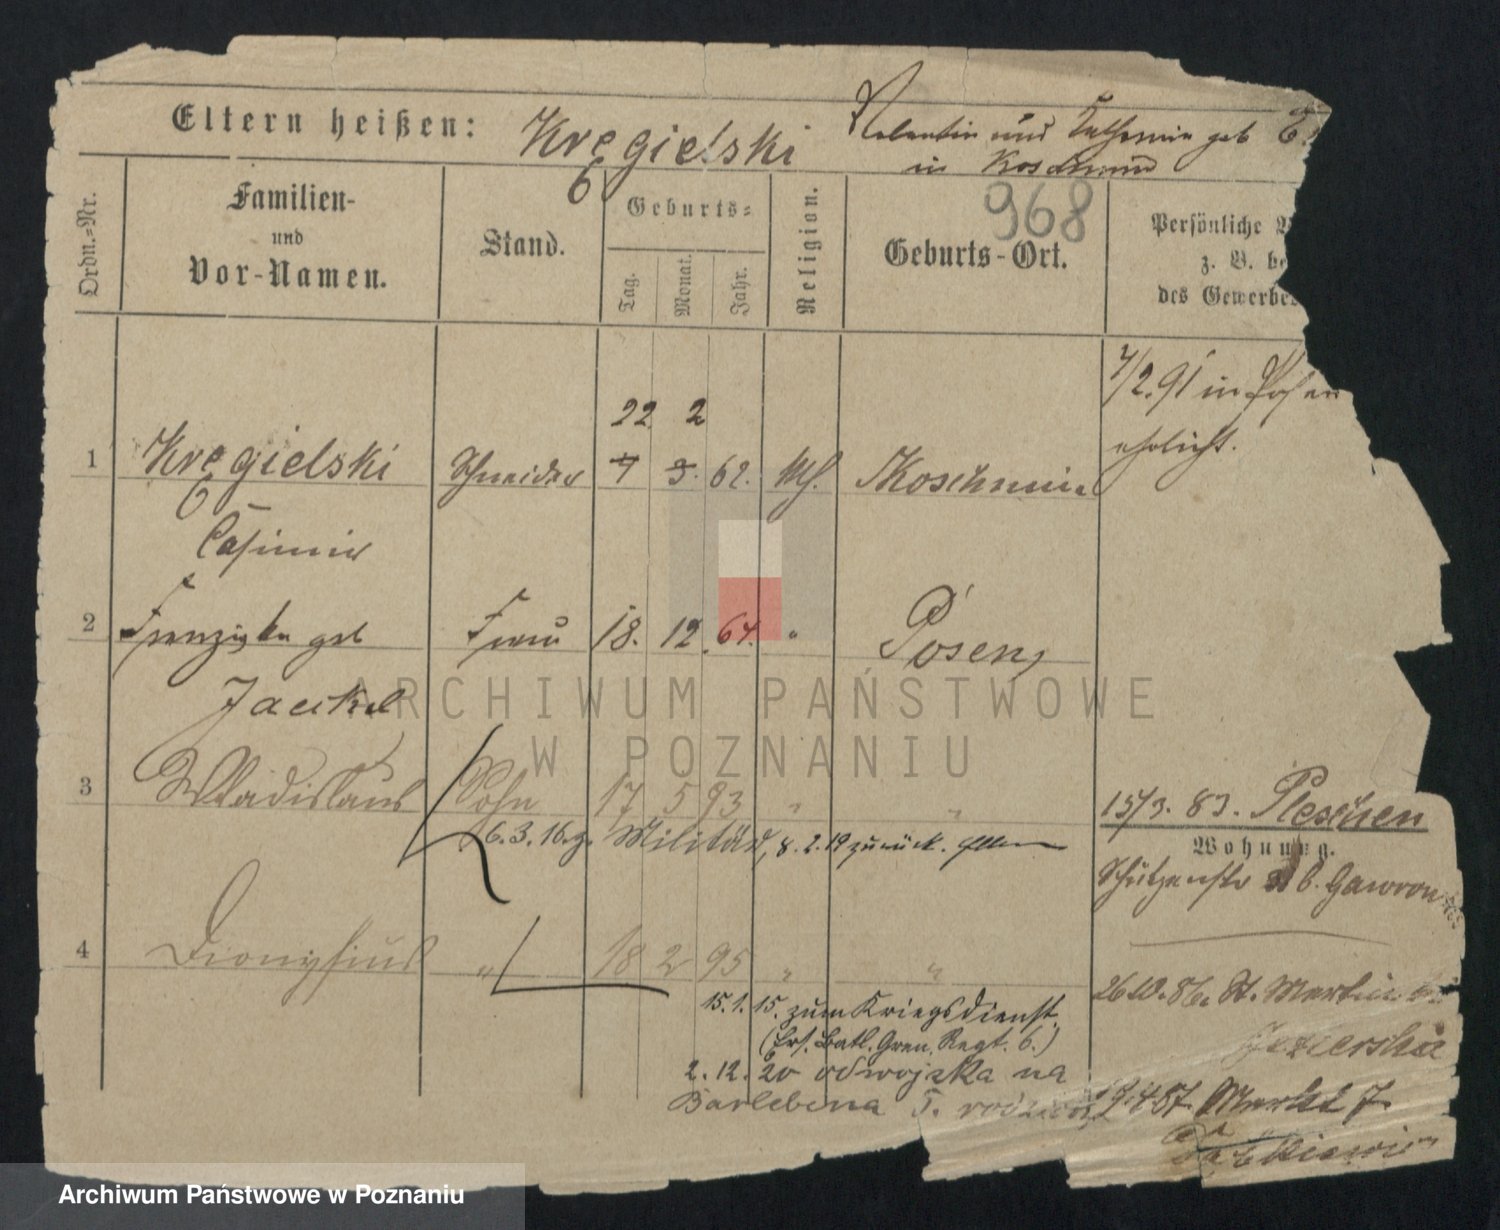 Eltern heißen: Kręgielski Valentin und Catharina geb
in Koschmin
968
Ordn.=Nr.
Familien-
und
Vor-Namen.
Stand.
Geburts=
Tag.
Monat.
Jahr.
Religion.
Geburts-Ort.
Persönliche
z. B. be
des Gewerbe
7/2.91 in Posen
ehelicht.
22 2
1 Kręgielski Schneider 7 3. 62. kth. Koschmin
Casimir
2 Franziska geb Frau 18. 12. 64. " Posen
Jaeckel
3 Wladislaus Sohn 17 5 93 " "
6.3.16. z. Militär, 8.2.19 zurück. Eltern
15/3. 83. Pleschen
Wohnung.
Schützenstr b. Gawron
4 Dionysius " 18 2 95 " "
15.1.15. zum Kriegsdienst
(Ers. Batl. Gren. Regt. 6.)
2.12.20 od wojska na
Barlebena 5.
26.10.86. St. Martin
Jezierska
19.4.87. Markt 7.
ARCHIWUM PAŃSTWOWE
W POZNANIU
Archiwum Państwowe w Poznaniu